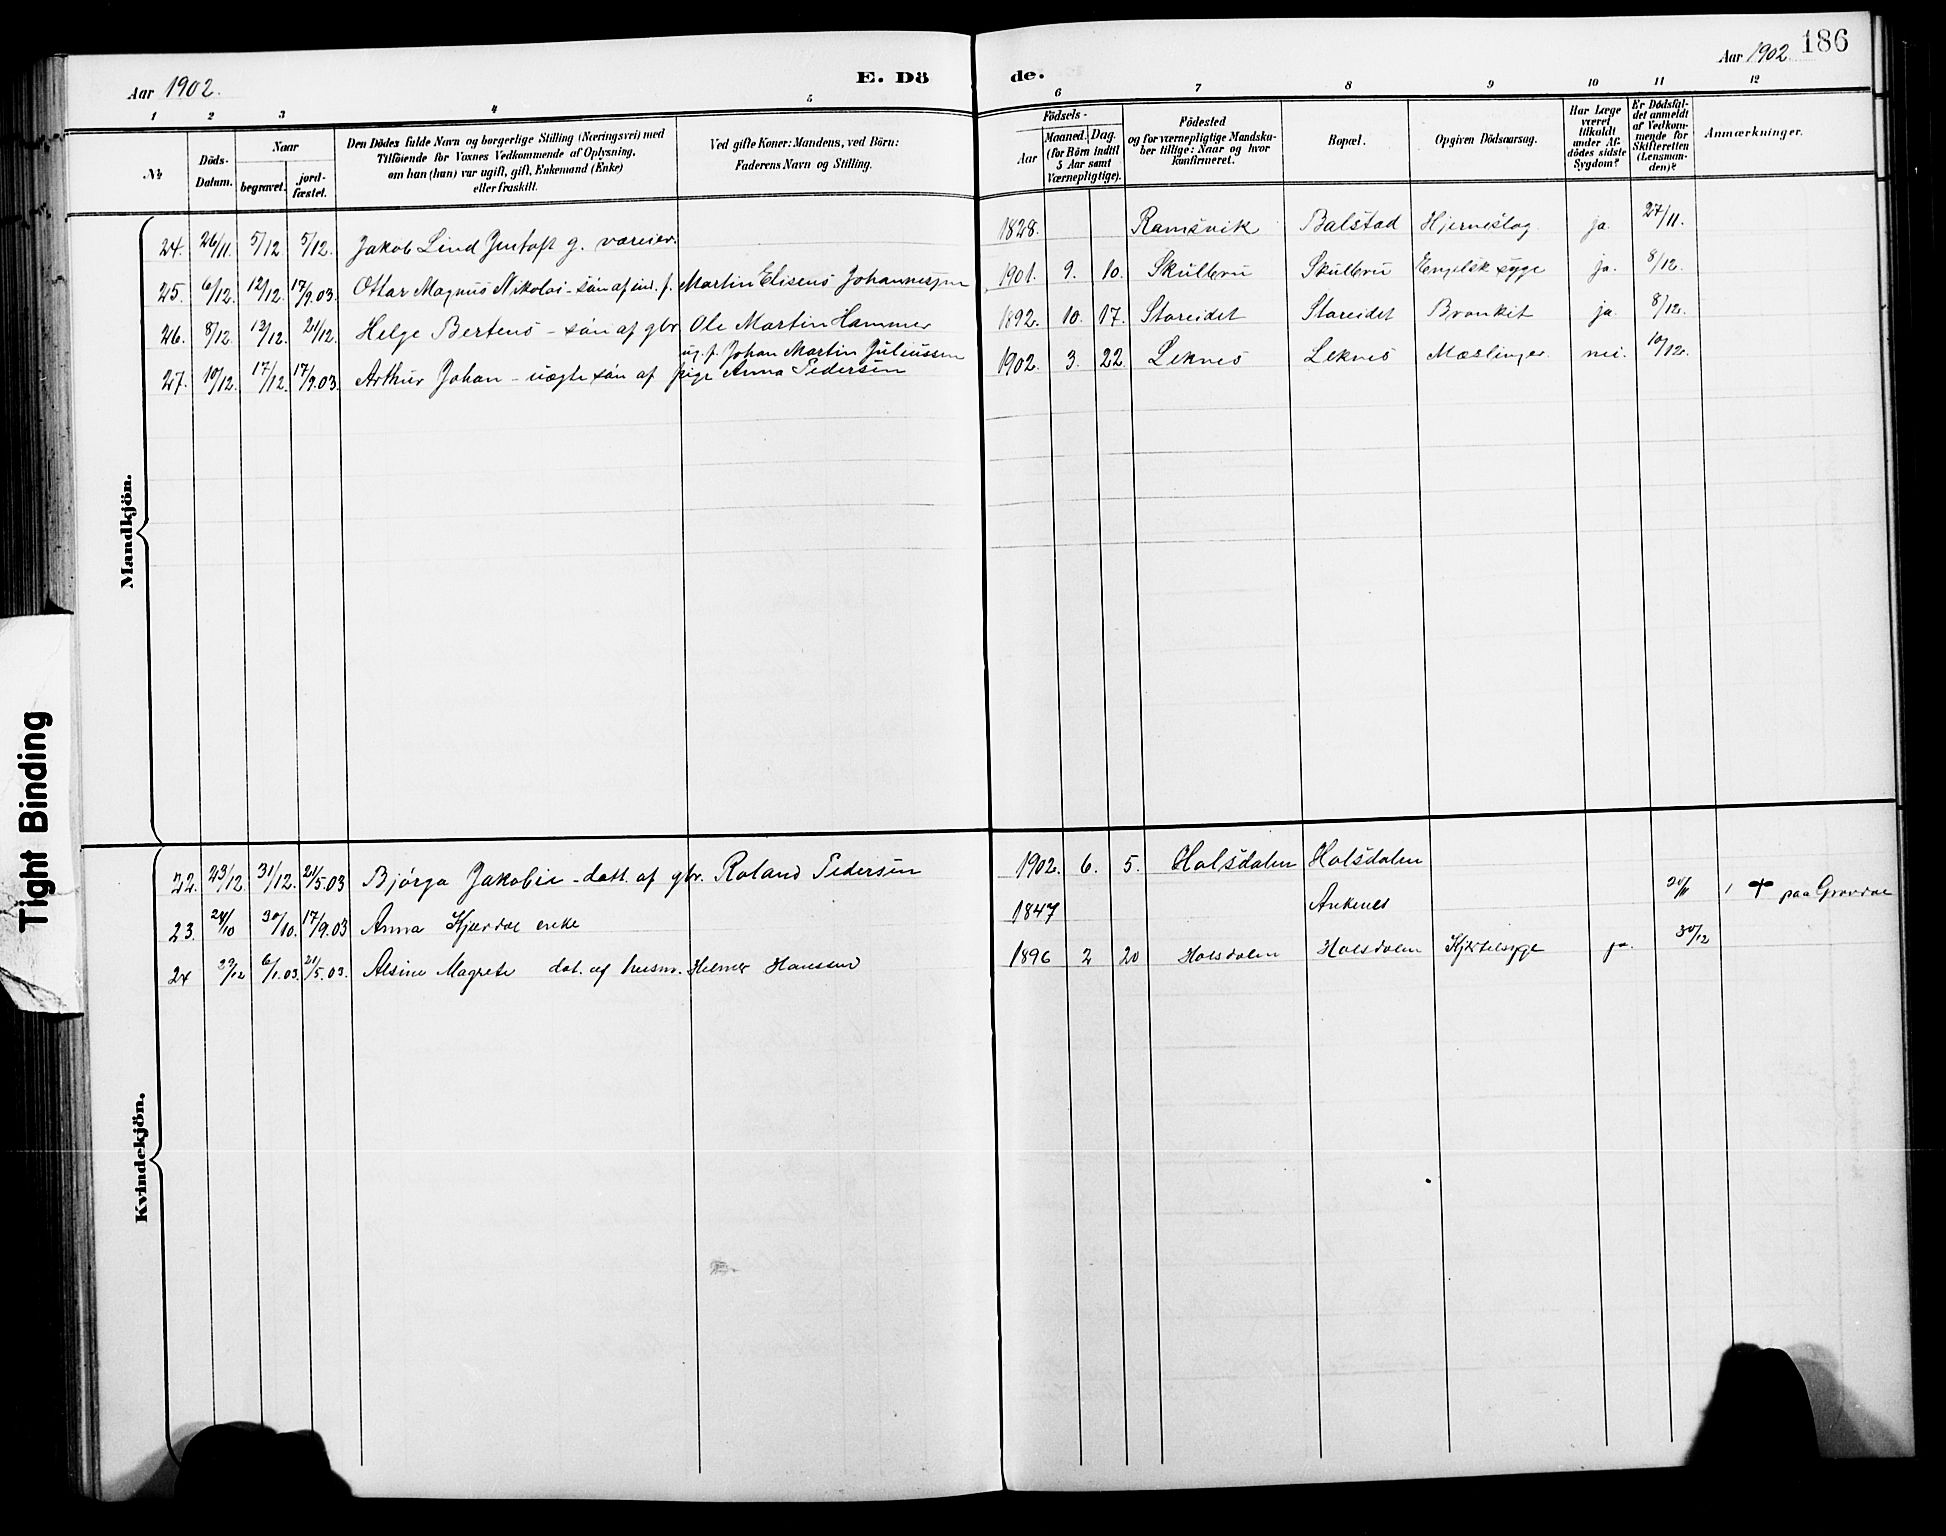 186
Aar 1902. E. Döde. Aar 1902
1 2 3 4 5 6 7 8 9 10 11 12
№ Döds-Datum. Naar begravet. jord-fæstet.
Den Dödes fulde Navn og borgerlige Stilling (Næringsvei) med
Tilföiende for Voxnes Vedkommende af Oplysning,
om han (hun) var ugift, gift, Enkemand (Enke)
eller fraskilt.
Ved gifte Koner: Mandens, ved Börn:
Faderens Navn og Stilling.
Födsels-
Aar Maaned. Dag.
(for Börn indtil
5 Aar samt
Værnepligtige).
Födested
og for værnepligtige Mandsku-
ber tillige: Naar og hvor
konfirmeret.
Bopæl.
Opgiven Dödsaarsag.
Har Læge
været
tilkaldt
under Af-
dödes sidste
Sygdom?
Er Dödsfal-
det anmeldt
af Vedkom-
mende for
Skifteretten
(Lensman-
den)?
Anmærkninger.
Mandkjön.
24. 26/11 5/12 5/12. Jakob Lind Jentoft g. væreier. 1828. Ramsvik Balstad Hjerneslag ja. 27/11.
25. 6/12. 12/12. 17/9.03. Ottar Magnus Nikolai - sön af ind. f. Martin Elisens Johannessen 1901. 9. 10. Skulbru Skulbru Engelsk syge ja. 8/12.
26. 8/12. 12/12. 21/12. Helge Bertens - sön af gbr. Ole Martin Hammer 1892. 10. 17. Storeidet Storeidet Bronkit ja. 8/12.
ug. f. Johan Martin Juliussen
27. 10/12. 17/12. 17/9.03. Arthur Johan - uægte sön af pige Anna Pedersen 1902. 3. 22. Leknes Leknes Mæslinger. nei. 10/12.
Kvindekjön.
22. 23/12. 31/12. 21/5.03 Bjórga Jakobia - datt. af gbr. Roland Pedersen 1902. 6. 5. Holsdalen Holsdalen
23. 24/10 30/10. 17/9.03 Anna Kjærdal enke 1847 Ankenes 20/11 1 ✝ paa Gravdal
24 29/12 6/1.03. 21/5.03. Alsine Magrete dat. af husm. Helmer Hansen 1896 2 20 Holsdalen Holsdalen Kjertelsyge ja. 30/12
Tight Binding